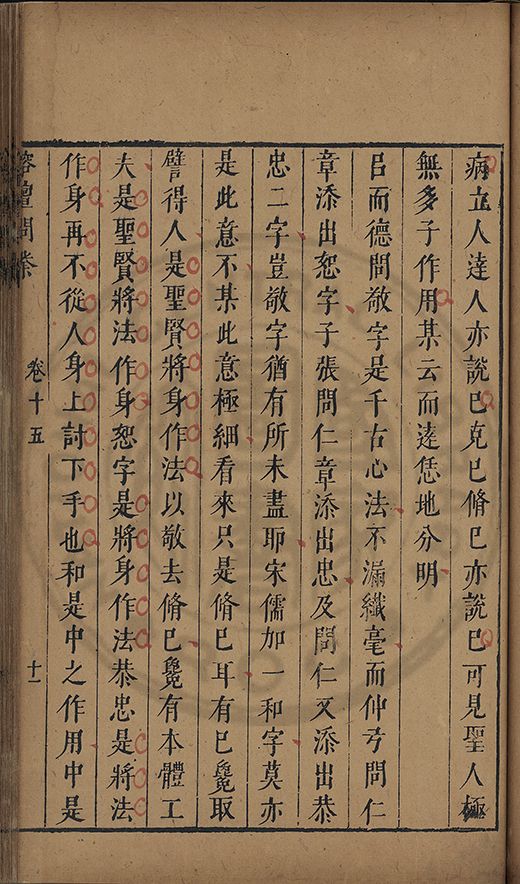 病立人達人亦說已克已脩已亦說已可見聖人極
無多子作用某云而逵恁地分明
呂而德問敬字是千古心法不漏纖毫而仲弓問仁
章添出恕字子張問仁章添出忠及問仁又添出恭
忠二字豈敬字猶有所未盡耶宋儒加一和字莫亦
是此意不某此意極細看來只是脩已耳有已纔取
譬得人是聖賢將身作法以敬去脩已纔有本體工
夫是聖賢將法作身恕字是將身作法恭忠是將法
作身再不從人身上討下手也和是中之作用中是
榕壇問業
卷十五
十一